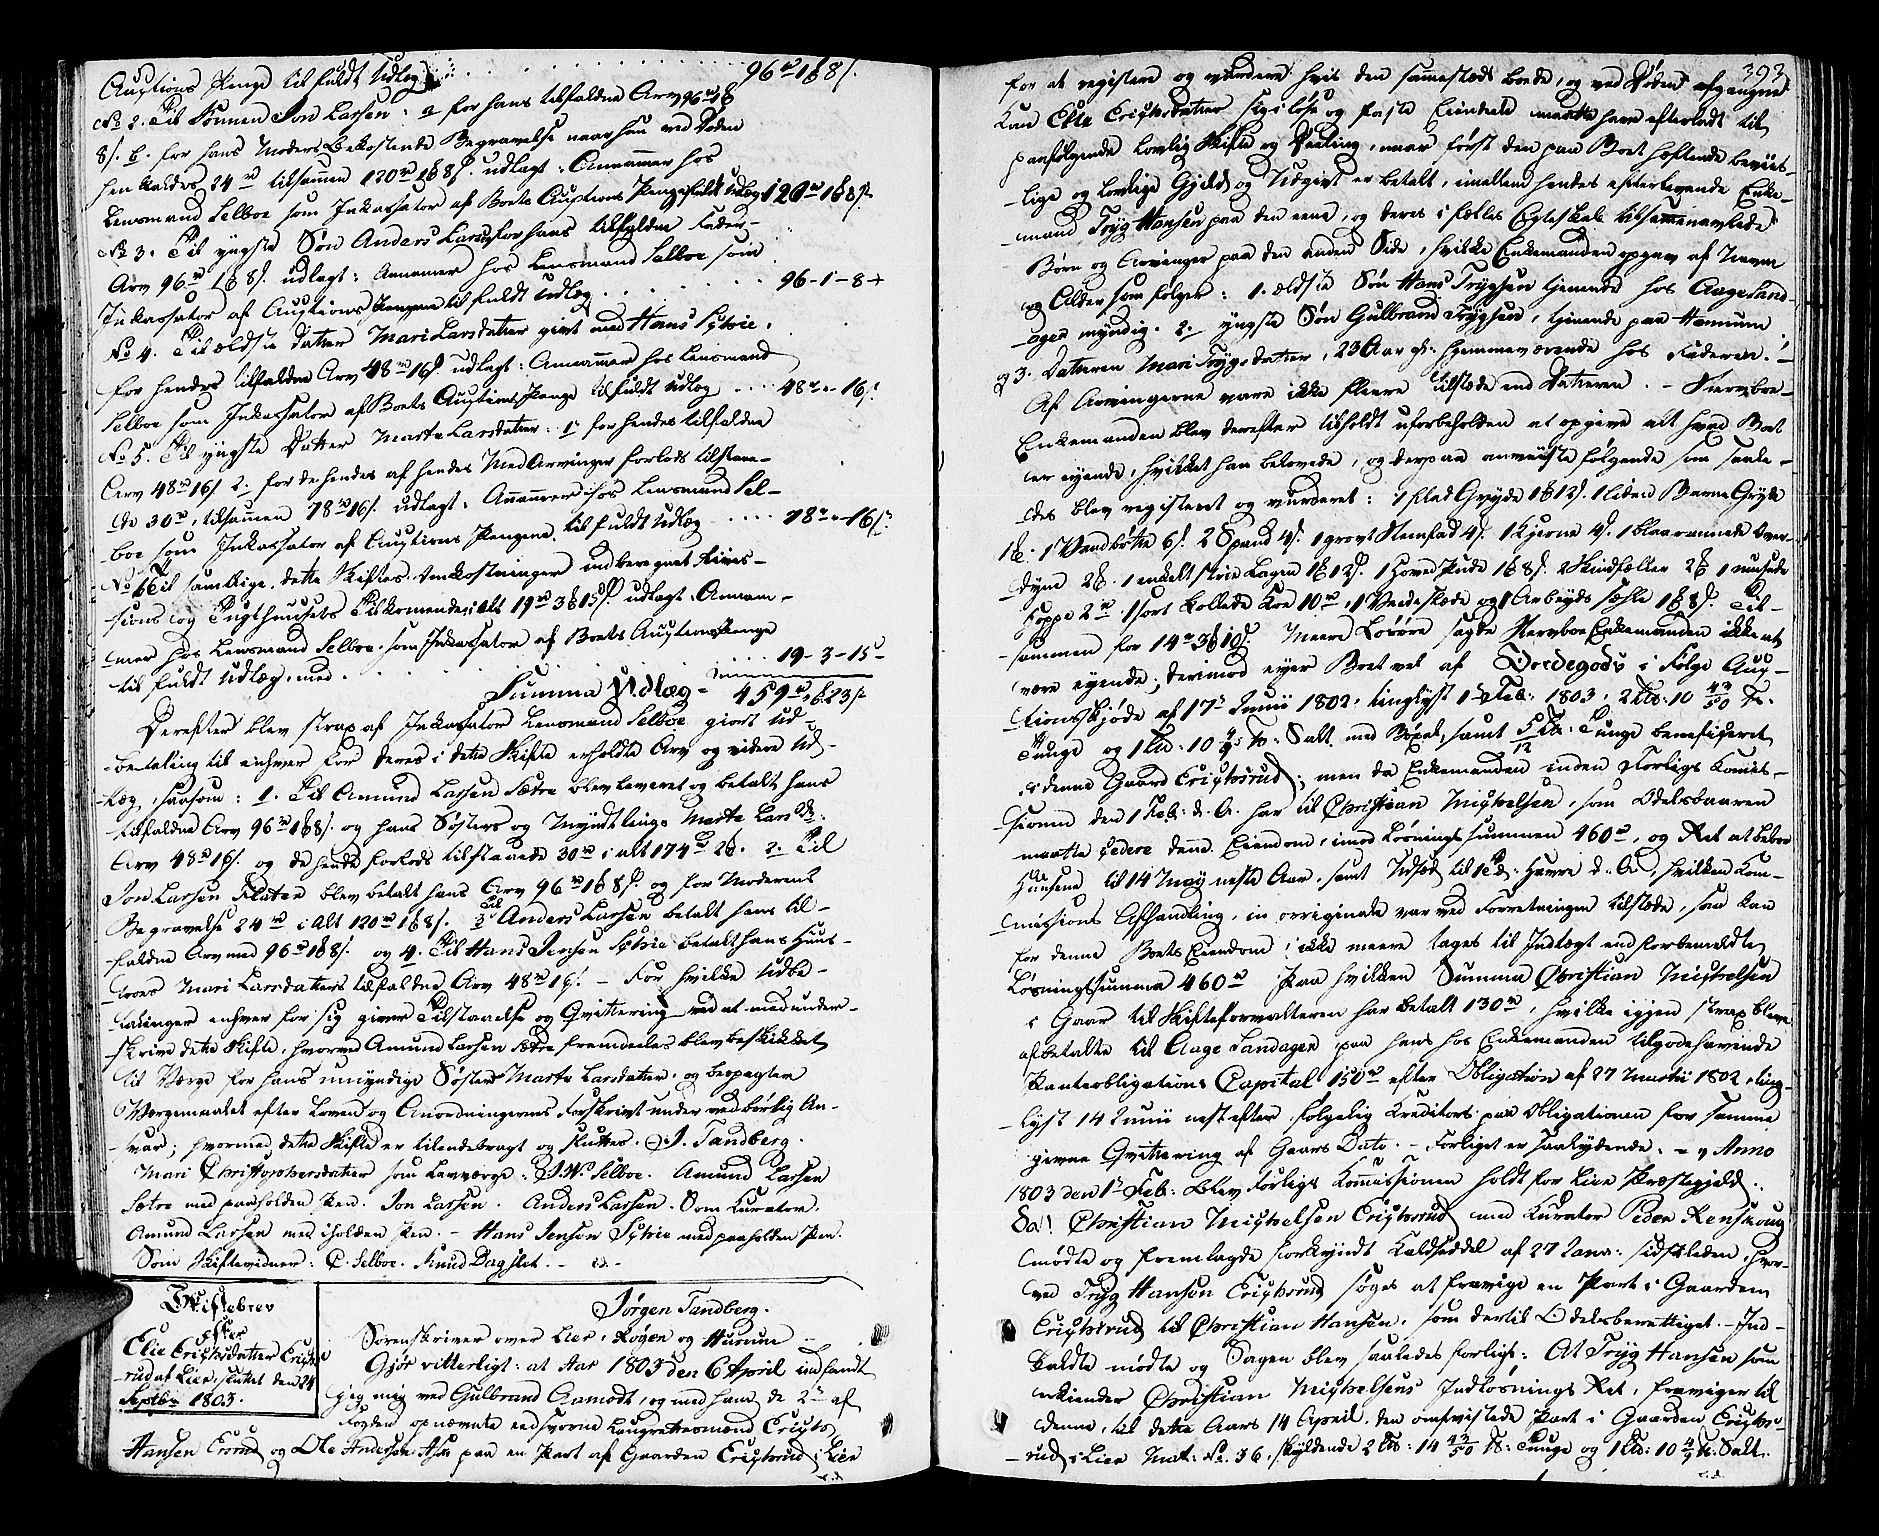 Auctions Penge til fuldt Udlæg . . . . . . 96 rd 1 ß 8 s.
No 2. Til Sønnen Jon Larsen: a for hans tilfaldne Arv 96 rd 1 ß
8 s. b. for hans Moders bekostende Begravelse naar hun ved Døden
henkaldes 24 rd tilsammen 120 rd 1 ß 8 s. udlagt: Annammer hos
Lensmand Selboe som Inkassator af Boets Auctions Penge fuldt Udlæg 120 rd 1 ß 8 s.
No 3. Til yngste Søn Anders Larsen for hans tilfaldne Fæder-
Arv 96 rd 1 ß 8 s. udlagt: Annamer hos Lensmand Selboe som
Inkassator af Auctions Pengene til fuldt Udlæg . . . . . . 96-1-8
No 4. Til ældste Datter Mari Larsdatter givt med Hans Sytrie.
for hendes tilfaldne Arv 48 rd 16 s. udlagt: Annammer hos Lensmand
Selboe som Inkassator af Boets Auctions Penge til fuldt Udlæg . . . . 48 rd - 16 s.
No 5. Til yngste Datter Marte Larsdatter: 1 for hendes tilfaldne
Arv 48 rd 16 s. 2. for de hendes af hendes Med Arvinger forlods tilstaae-
de 30 rd, tilsammen 78 rd 16 s. udlagt: Annammer hos Lensmand Sel-
boe som Inkassator af Auctions Pengene til fuldt Udlæg . . . . 78 rd - 16 s.
No 6 Til samtlige dette Skiftes Omkostninger indberegnet
sions og Tugthusets Tilkomende, i alt 19 rd 3 ß 15 s. udlagt: Annam-
mer hos Lensmand Selboe, som Inkassator af Boets Auctions Penge
til fuldt Udlæg, med . . . . . . . . 19-3-15-
Summa Udlæg - 459 rd 2 ß 23 s.
Derefter blev strax af Inkassator Lensmand Selboe giort Ud-
betaling til enhver for deres i dette Skifte erholdte Arv og videre Ud-
læg, saasom: 1. Til Amund Larsen Sætre blev leveret og betalt hans
tilfaldne Arv 96 rd 1 ß 8 s. og hans Søsters og Myndtlings Marte Larsdr:
Arv 48 rd 16 s. og de hende forlods tilstaaede 30 rd i alt 174 rd 2 ß. 2. Til
Jon Larsen Flaten blev betalt hans Arv 96 rd 1 ß 8 s. og for Moderens
Begravelse 24 rd i alt 120 rd 1 ß 8 s. 3 Til Anders Larsen betalt hans til-
faldne Arv med 96 rd 1 ß 8 s. og 4. Til Hans Jensen Sytrie betalt hans Huus-
troes Mari Larsdatters tilfaldne Arv 48 rd 16 s. - For hvilke Udbe-
talinger enhver for sig giver Tilstaaelse og Qvittering ved at medunder-
skrive dette Skifte, hvorved Amund Larsen Sætre fremdeeles blev beskikket
til Værge for hans umyndige Søster Marte Larsdatter, og besørger
Værgemaalet efter Loven og Anordningernes Forskrivt under vedbørlig An-
svar; hvormed dette Skifte er tilendebragt og sluttet. J. Tandberg.
Mari Christophersdatter som Lavværge: J. N. Selboe. Amund Larsen
Sætre med paaholden Pen. Jon Larsen. Anders Larsen. Som Kurator.
Amund Larsen med iholden Pen. - Hans Jensen Sytrie med paaholden Pen.
Som Skiftevidner: C. Selboe. Knud Dagslet. -
Skiftebrev
efter
Elie Erichsdatter Erichs-
rud af Lier, sluttet den 24
Septbr: 1803.
Jørgen Tandberg.
Sorenskriver over Lier, Røgen og Hurum -
Gjør vitterligt: at Aar 1803 den 6 April indfandt
jeg mig ved Gulbrand Aamodt, og med ham de 2de af
Fogden opnævnte eedsvorne Laugrettesmænd Erichs
Hansen Egsrud og Ole Andersen Aise paa en Part af Gaarden Erichsrud i Lier
393
for at registere og vurdere hvis den sammestæds boede, og ved Døden afgangne
Kone Elie Erichsdatter Erichs løse og faste Eiendeele maatte have efterladt til
paafølgende lovlig Skifte og Deeling, naar først den paa Boet heftende beviis-
lige og lovlige Gjeld og Udgivt er betalt, imellem hendes efterlevende Enke-
mand Tryg Hansen paa den eene, og deres i fælles Egteskab tilsammenavlede
Børn og Arvinger paa den anden Side, hvilke Enkemanden opgav af Navn
og Alder som følger: 1. ældste Søn Hans Trygsen tjenende hos Aage Land-
ager myndig. 2. yngste Søn Gulbrand Trygsen, tjenende paa Hennum
og 3. Datteren Mari Trygsdatter, 23 Aar gl: hjemmeværende hos Faderen. -
Af Arvingerne vare ikke fleere tilstæde end Datteren. - Stervboe-
Enkemanden blev derefter tilholdt uforbeholden at opgive alt hvad Boet
er eyende, hvilket han belovede, og derpaa anviiste følgende som saale-
des blev registeret og vurderet: 1 flad Gryde 1 ß 12 s. 1 liden Barne Gryte
1 ß. 1 Vandbøtte 6 s. 2 Spand 4 s. 1 grovt Stenfad 4 s. 1 Kjerne 4 s. 1 blaarannet Over-
dyne 2 ß. 1 enkelt strie Lagen 1 ß 12 s. 1 Hoved Pude 1 ß 8 s. 2 Skindfæller 2 ß 1 muusude
Hoppe 2 rd. 1 sort kollede Koe 10 rd, 1 Veideslæde og 1 Arbeyds sæhle 1 ß 8 s. Til-
sammen for 14 rd 3 ß 10 s. Meere Løsøre sagde Stervboe Enkemanden ikke at
være eyende; derimod eyer Boet vel af Jordegods i Følge Auc-
tionsskjøde af 17de Junii 1802, tinglyst 1te Feb: 1803, 2 Ld: 10 43/50 Tr.
Tunge og 1 Ld: 10 4/9 Tr: Salt med Bøxel, samt 5/12 Td: Tunge beneficeret
i denne Gaard Erichsrud; men da Enkemanden inden Forligs Kommis-
sionen den 1 Feb: d: A: har til Christian Michelsen, som Odelsbaaren
maatte cedere denne Eiendom, imod Løsnings summen 460 rd, og Ret at beboe
Husene til 14 May neste Aar, samt Udsæd til 1 Td: Havre d: A:, hvilken Kom-
missions Afhandling, in originale var ved Forretningen tilstæde, saa kan
for denne Boets Eiendom ikke meere tages til Indtægt end forbemeldte
Løsningssumma 460 rd Paa hvilken Summa Christian Michelsen
i Gaar til Skifteforvalteren har betalt 130 rd, hvilke igjen strax bleve
afbetalte til Aage Landager paa hans hos Enkemanden tilgodehavende
Panteobligations Capital 150 rd efter Obligation af 27 Martii 1802, ting-
lyst 14 Junii nest efter følgelig Kreditors paa Obligationen for samme
givne Qvittering af Gaars Dato. - Forliget er saalydende. - Anno
1803 den 1te Feb: blev Forligs Kommissionen holdt for Lier Præstegjeld.
Da! Christian Michelsen Erichsrud med Kurator Peder Renskoug
mødte og fremlagde forkyndt Kaldseddel af 27 Janr: sidstleden, hvor-
ved Tryg Hansen Erichsrud søges at fravige en Part i Gaarden
Erichsrud til Christian Hansen, som dertil Odelsberettiget. - Ind-
kaldte mødte og Sagen blev saaledes forligt: At Tryg Hansen som
erkiender Christian Michelsens Indløsnings Ret, fraviger til
denne, til dette Aars 14 April den omtvistede Part i Gaarden Erichs-
rud i Lier Mat: No. 36, skyldende 2 Td: 14 43/50 Tr: Tunge og 1 Td: 10 4/9 Tr: Salt.